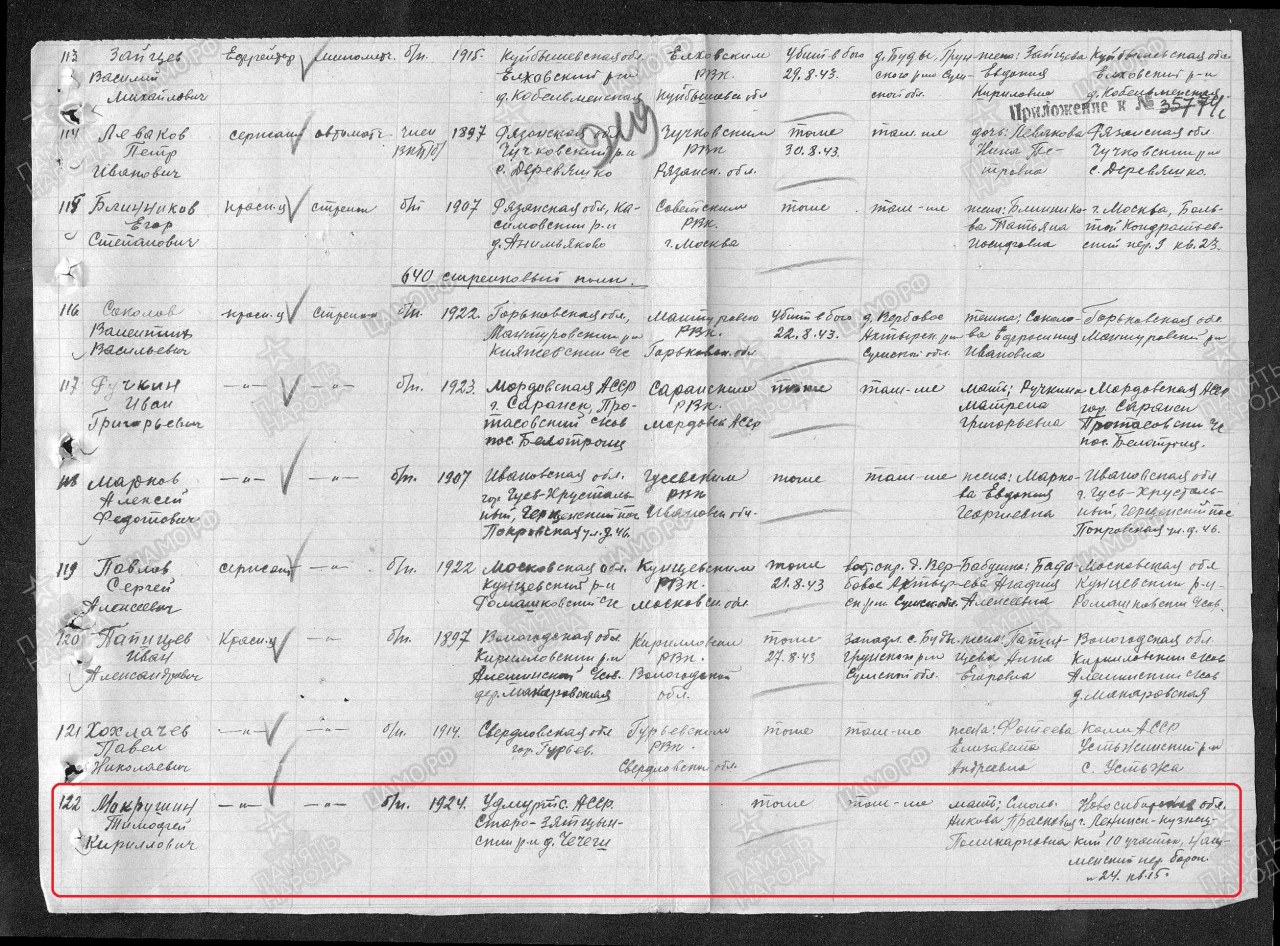 113 Зайцев Ефрейтор миномётч. б/п. 1915. Куйбышевская обл. Елховским Убит в бою д. Буды, Грун- жена: Зайцева Куйбышевская обл.
Василий Елховский р-н РВК 29.8.43. ского р-на Сум- Евдокия Елховский р-н
Михайлович Куйбышевск. обл ской обл. Кириловна
Приложение к № 35774с
114 Леваков сержант автоматч. член 1897 Рязанская обл. Чучковским тоже там-же дочь: Левакова Рязанская обл.
Петр ВКП(б) Чучковский р-н РВК 30.8.43. Нина Пе- Чучковский р-н
Иванович с. Деревяшко Рязанск. обл. тровна с. Деревяшко.
115 Блинников красн-ц стрелок б/п 1907 Рязанская обл., Ка- Советским тоже там-же жена: Блиннико- г. Москва, Боль-
Егор симовский р-н РВК. ва Татьяна шой Кондратьев-
Степанович г. Москва Иосифовна ский пер. 9 кв. 23.
640 стрелковый полк.
116 Соколов красн-ц стрелок б/п. 1922. Горьковская обл., Мантурово Убит в бою д. Вербовое Горьковская обл.
Валентин Мантуровский р-н РВК. 22.8.43. Ахтырск. р-н ва Ефросиния Мантуровский р-н
Васильевич Княжевский с/с Горьковск. обл. Сумской обл. Ивановна
117 Ручкин —„— —„— б/п. 1923. Мордовская АССР Саранским тоже там-же мать; Ручкина Мордовская АССР
Иван г. Саранск, Про- РВК. Матрена гор. Саранск
Григорьевич тасовский с/сов Мордовск АССР Григорьевна Протасовский с/с
пос. Белотроиц пос. Белотроиц.
118 Марков —„— —„— б/п. 1907 Ивановская обл. Гусевским тоже там-же жена: Марко- Ивановская обл
Алексей гор. Гусь-Хрусталь- РВК ва Евдокия г. Гусь-Хрусталь-
Федотович ный, пос Ивановск. обл. Георгиевна ный, пос
Покровская ул. д. 46. Покровская ул. д. 46.
119 Павлов сержант —„— б/п. 1922 Московская обл. Кунцевским тоже выс. д. Вер- Бабушка: Московская обл
Сергей Кунцевский р-н РВК. 21.8.43 бовое Ахтыр- Агафия Кунцевский р-н
Алексеевич Ромашковский с/с Московск. обл ск. р-н Сумск. обл. Алексеевна Ромашковский с/сов.
120 Папицев Красн-ц —„— б/п. 1897 Вологодская обл Кирилловск тоже запад. с. Буды жена: Папи- Вологодская обл
Иван Кирилловский р-н РВК. 27.8.43 Грунского р-на цева Анна Кирилловский р-н
Александрович Алешинский с/сов. Вологодской Сумской обл. Егоровна Алешинский с/сов
дер. Макаровская обл. д. Макаровская
121 Хохлачев —„— —„— б/п. 1914. Свердловская обл Гурьевским тоже там-же жена: Фотеева Коми АССР
Павел гор. Гурьев. РВК. Елизавета р-н
Николаевич Свердловск. обл. Андреевна с.
122 Мокрушин —„— —„— б/п. 1924. Удмуртс. АССР. тоже там-же мать; Смоль- Новосибирская обл.
Тимофей Старо-Зятцын- никова Прасковья г. Ленинск-Кузнец-
Кириллович ский р-н д. Чечеги Поликарповна кий 10 участок,
пер. барак
№24. кв. 15.